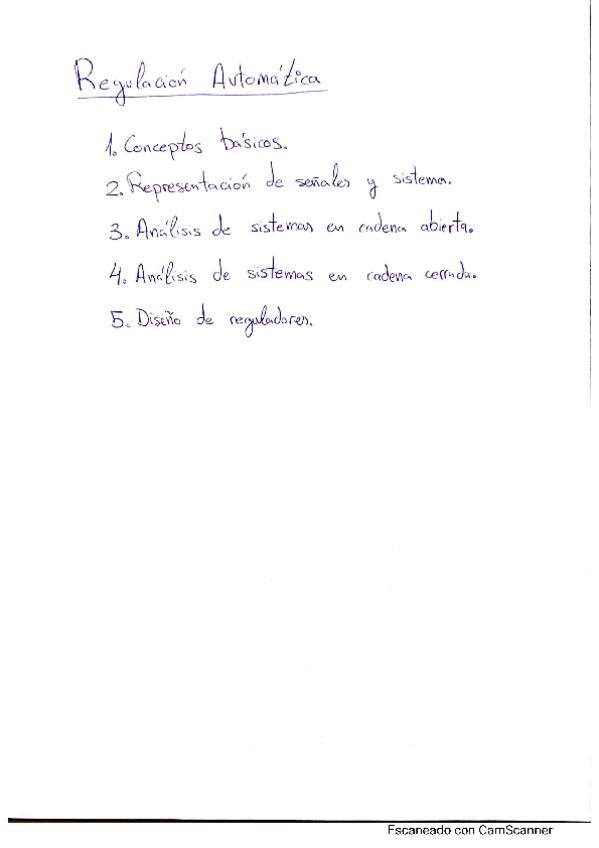 Regulación Automática
1. Conceptos básicos.
2. Representación de señales y sistema.
3. Análisis de sistemas en cadena abierta.
4. Análisis de sistemas en cadena cerrada.
5. Diseño de reguladores.
Escaneado con CamScanner